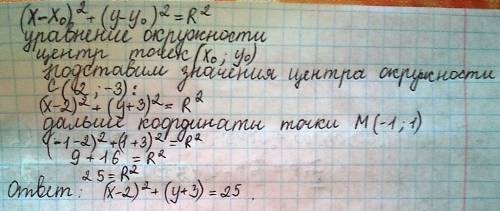 (x-x₀)²+(y-y₀)²=R²
уравнение окружности
центр точек (x₀; y₀)
подставим значения центра окружности
C(2; -3):
(x-2)²+(y+3)²=R²
дальше координаты точки M(-1;1)
(-1-2)²+(1+3)²=R²
9+16=R²
25=R²
Ответ: (x-2)²+(y+3)=25.